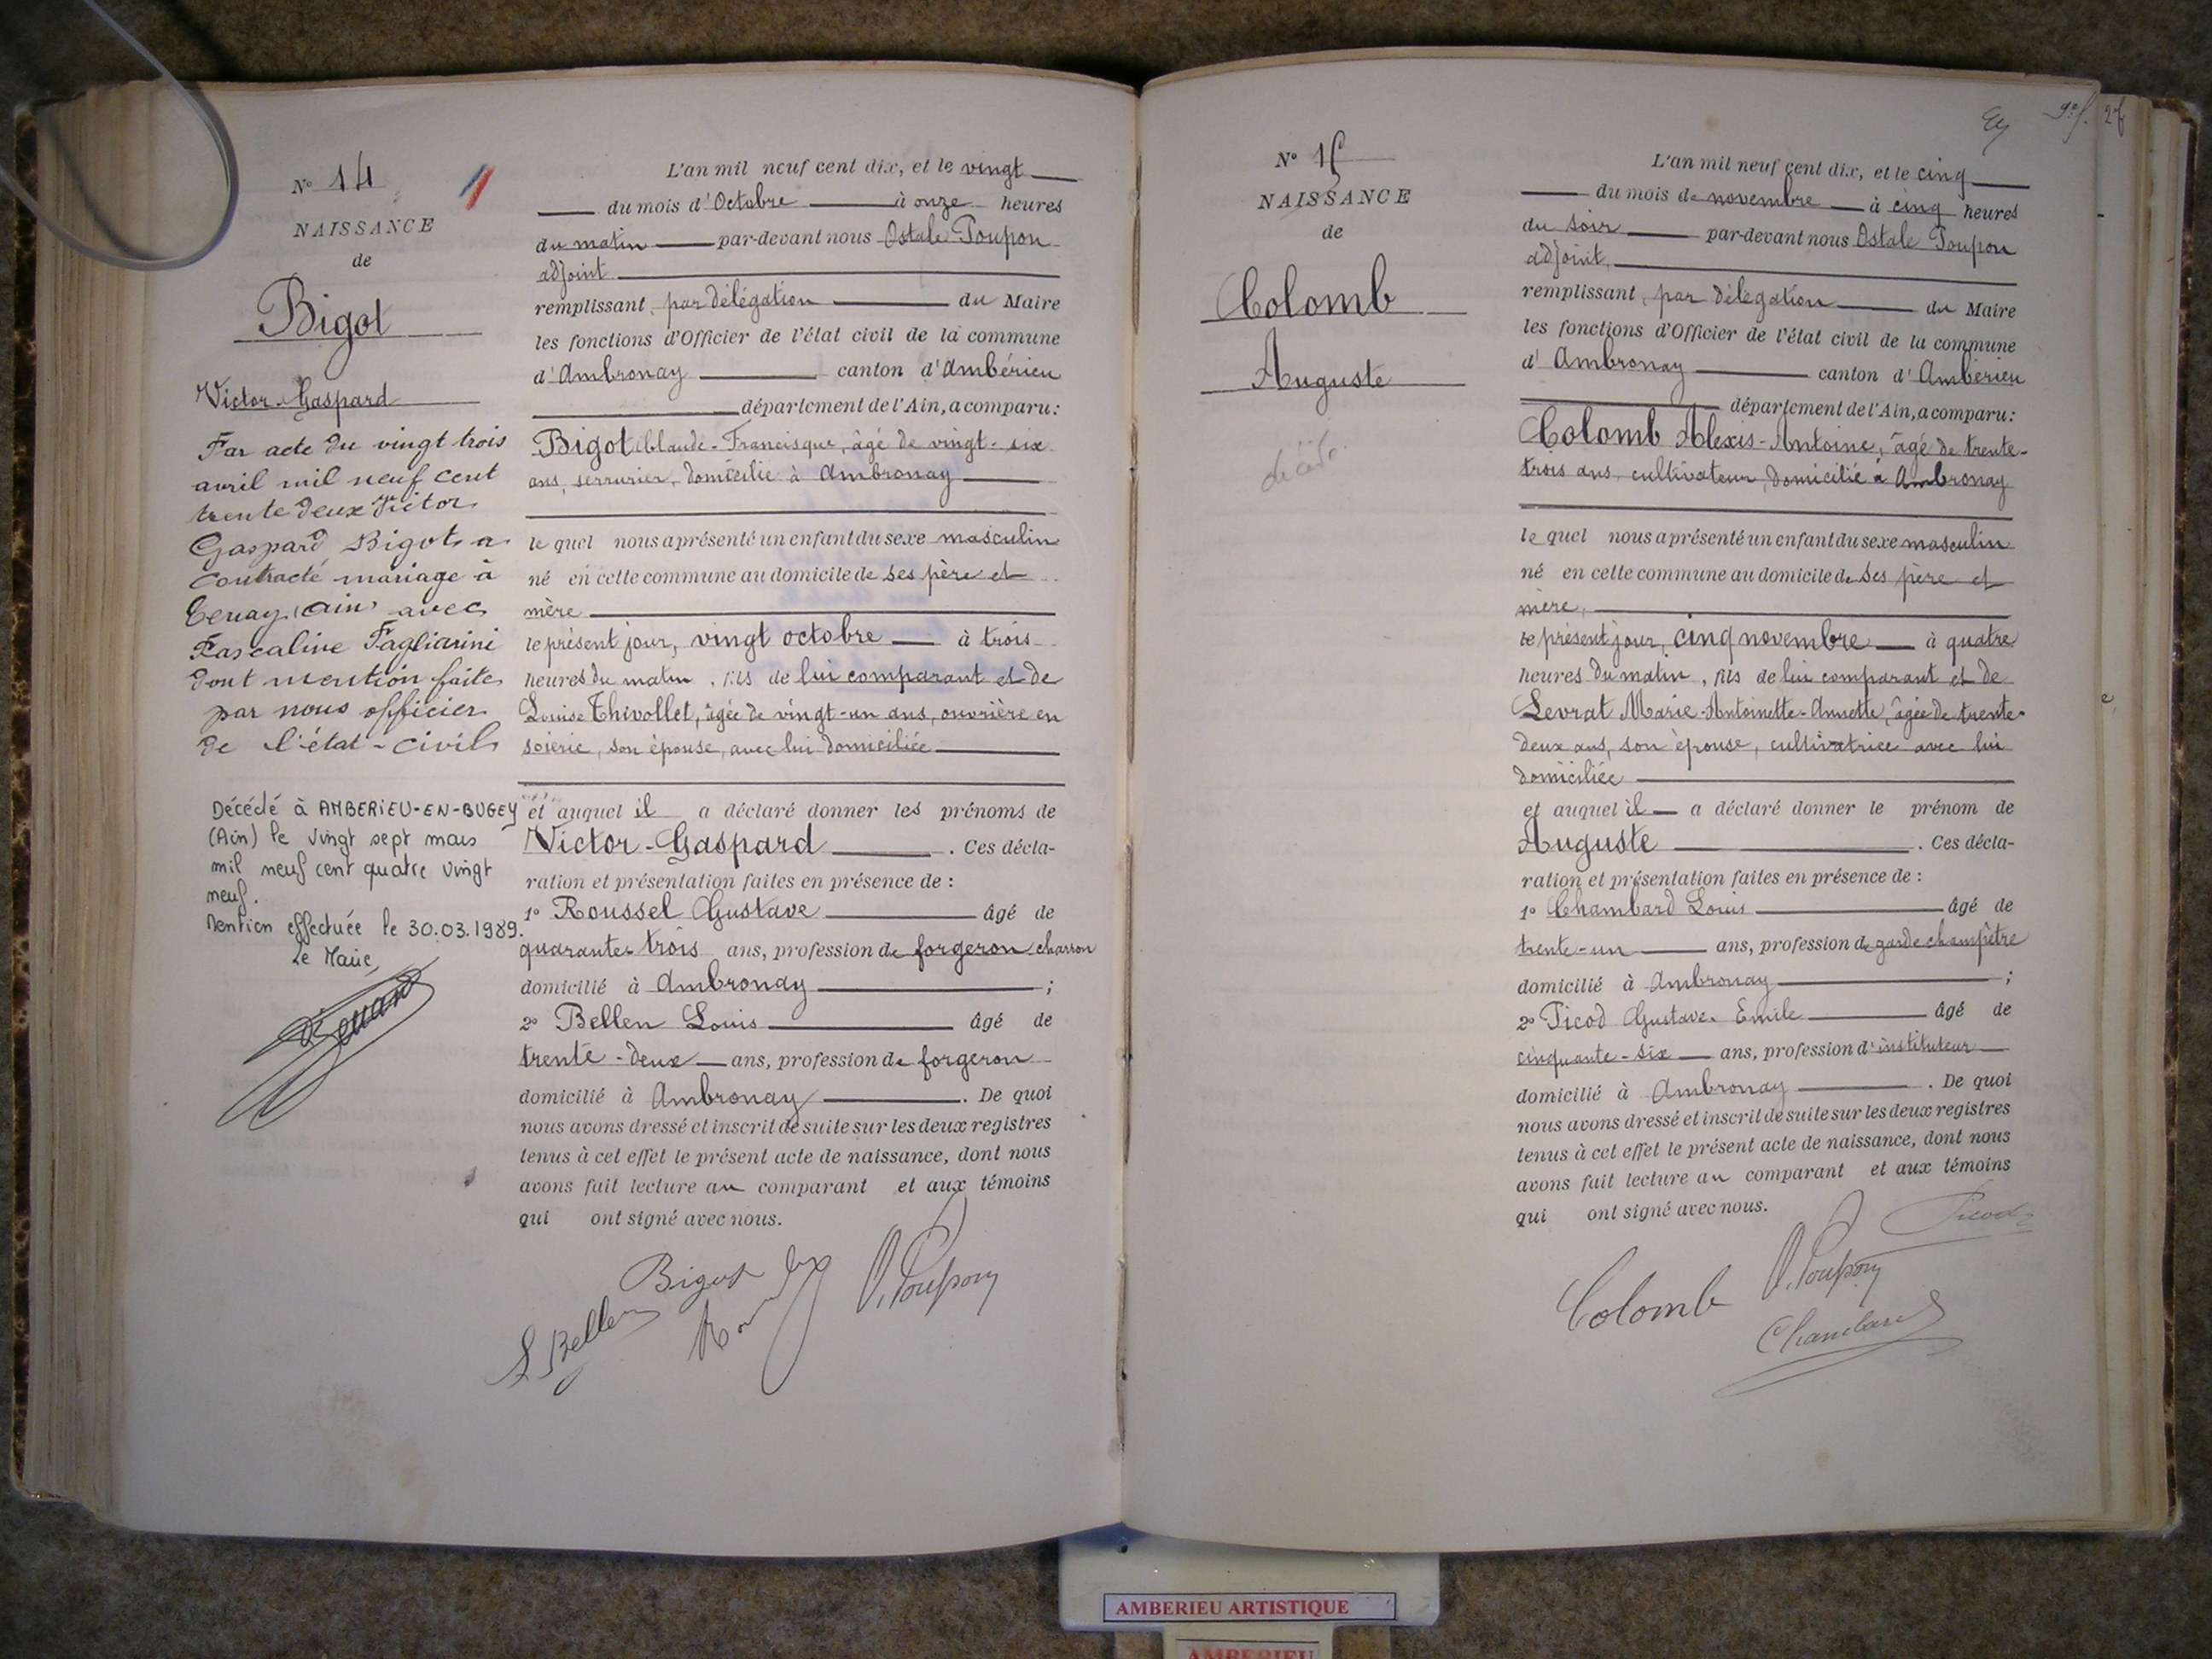 N° 14
NAISSANCE
de
Bigot
Victor-Gaspard
Par acte du vingt trois
avril mil neuf cent
trente deux Victor
Gaspard Bigot a
contracté mariage à
Tenay (Ain) avec
Pascaline Pagliarini
dont mention faite
par nous officier
de l'état-civil
Décédé à AMBERIEU-EN-BUGEY
(Ain) le vingt sept mars
mil neuf cent quatre vingt
neuf.
Mention effectuée le 30.03.1989.
Le Maire,
L'an mil neuf cent dix, et le vingt
du mois d'Octobre à onze heures
du matin par-devant nous Ostale Poupon
adjoint
remplissant, par délégation du Maire
les fonctions d'Officier de l'état civil de la commune
d'Ambronay canton d'Ambérieu
département de l'Ain, a comparu:
Bigot Claude-Francisque, âgé de vingt-six
ans, serrurier, domicilié à Ambronay
le quel nous a présenté un enfant du sexe masculin
né en cette commune au domicile de ses père et
mère
le présent jour, vingt octobre à trois
heures du matin, fils de lui comparant et de
Louise Thivollet, âgée de vingt-un ans, ouvrière en
soierie, son épouse, avec lui domiciliée
et auquel il a déclaré donner les prénoms de
Victor-Gaspard. Ces décla-
ration et présentation faites en présence de :
1° Roussel Gustave âgé de
quarante-trois ans, profession de forgeron-charron
domicilié à Ambronay ;
2° Bellen Louis âgé de
trente-deux ans, profession de forgeron
domicilié à Ambronay. De quoi
nous avons dressé et inscrit de suite sur les deux registres
tenus à cet effet le présent acte de naissance, dont nous
avons fait lecture au comparant et aux témoins
qui ont signé avec nous.
Bigot
O. Poupon
L Bellen
N° 15
NAISSANCE
de
Colomb
Auguste
décédé
L'an mil neuf cent dix, et le cinq
du mois de novembre à cinq heures
du soir par-devant nous Ostale Poupon
adjoint,
remplissant, par délégation du Maire
les fonctions d'Officier de l'état civil de la commune
d'Ambronay canton d'Ambérieu
département de l'Ain, a comparu:
Colomb Alexis-Antoine, âgé de trente-
trois ans, cultivateur, domicilié à Ambronay
le quel nous a présenté un enfant du sexe masculin
né en cette commune au domicile de ses père et
mère,
le présent jour, cinq novembre à quatre
heures du matin, fils de lui comparant et de
Levrat Marie-Antoinette-Annette, âgée de trente-
deux ans, son épouse, cultivatrice avec lui
domiciliée
et auquel il a déclaré donner le prénom de
Auguste. Ces décla-
ration et présentation faites en présence de :
1° Chambard Louis âgé de
trente-un ans, profession de garde champêtre
domicilié à Ambronay ;
2° Picod Gustave-Emile âgé de
cinquante-six ans, profession d'instituteur
domicilié à Ambronay. De quoi
nous avons dressé et inscrit de suite sur les deux registres
tenus à cet effet le présent acte de naissance, dont nous
avons fait lecture au comparant et aux témoins
qui ont signé avec nous.
Picod
Colomb
O. Poupon
Chambard
AMBERIEU ARTISTIQUE
AMBERIEU